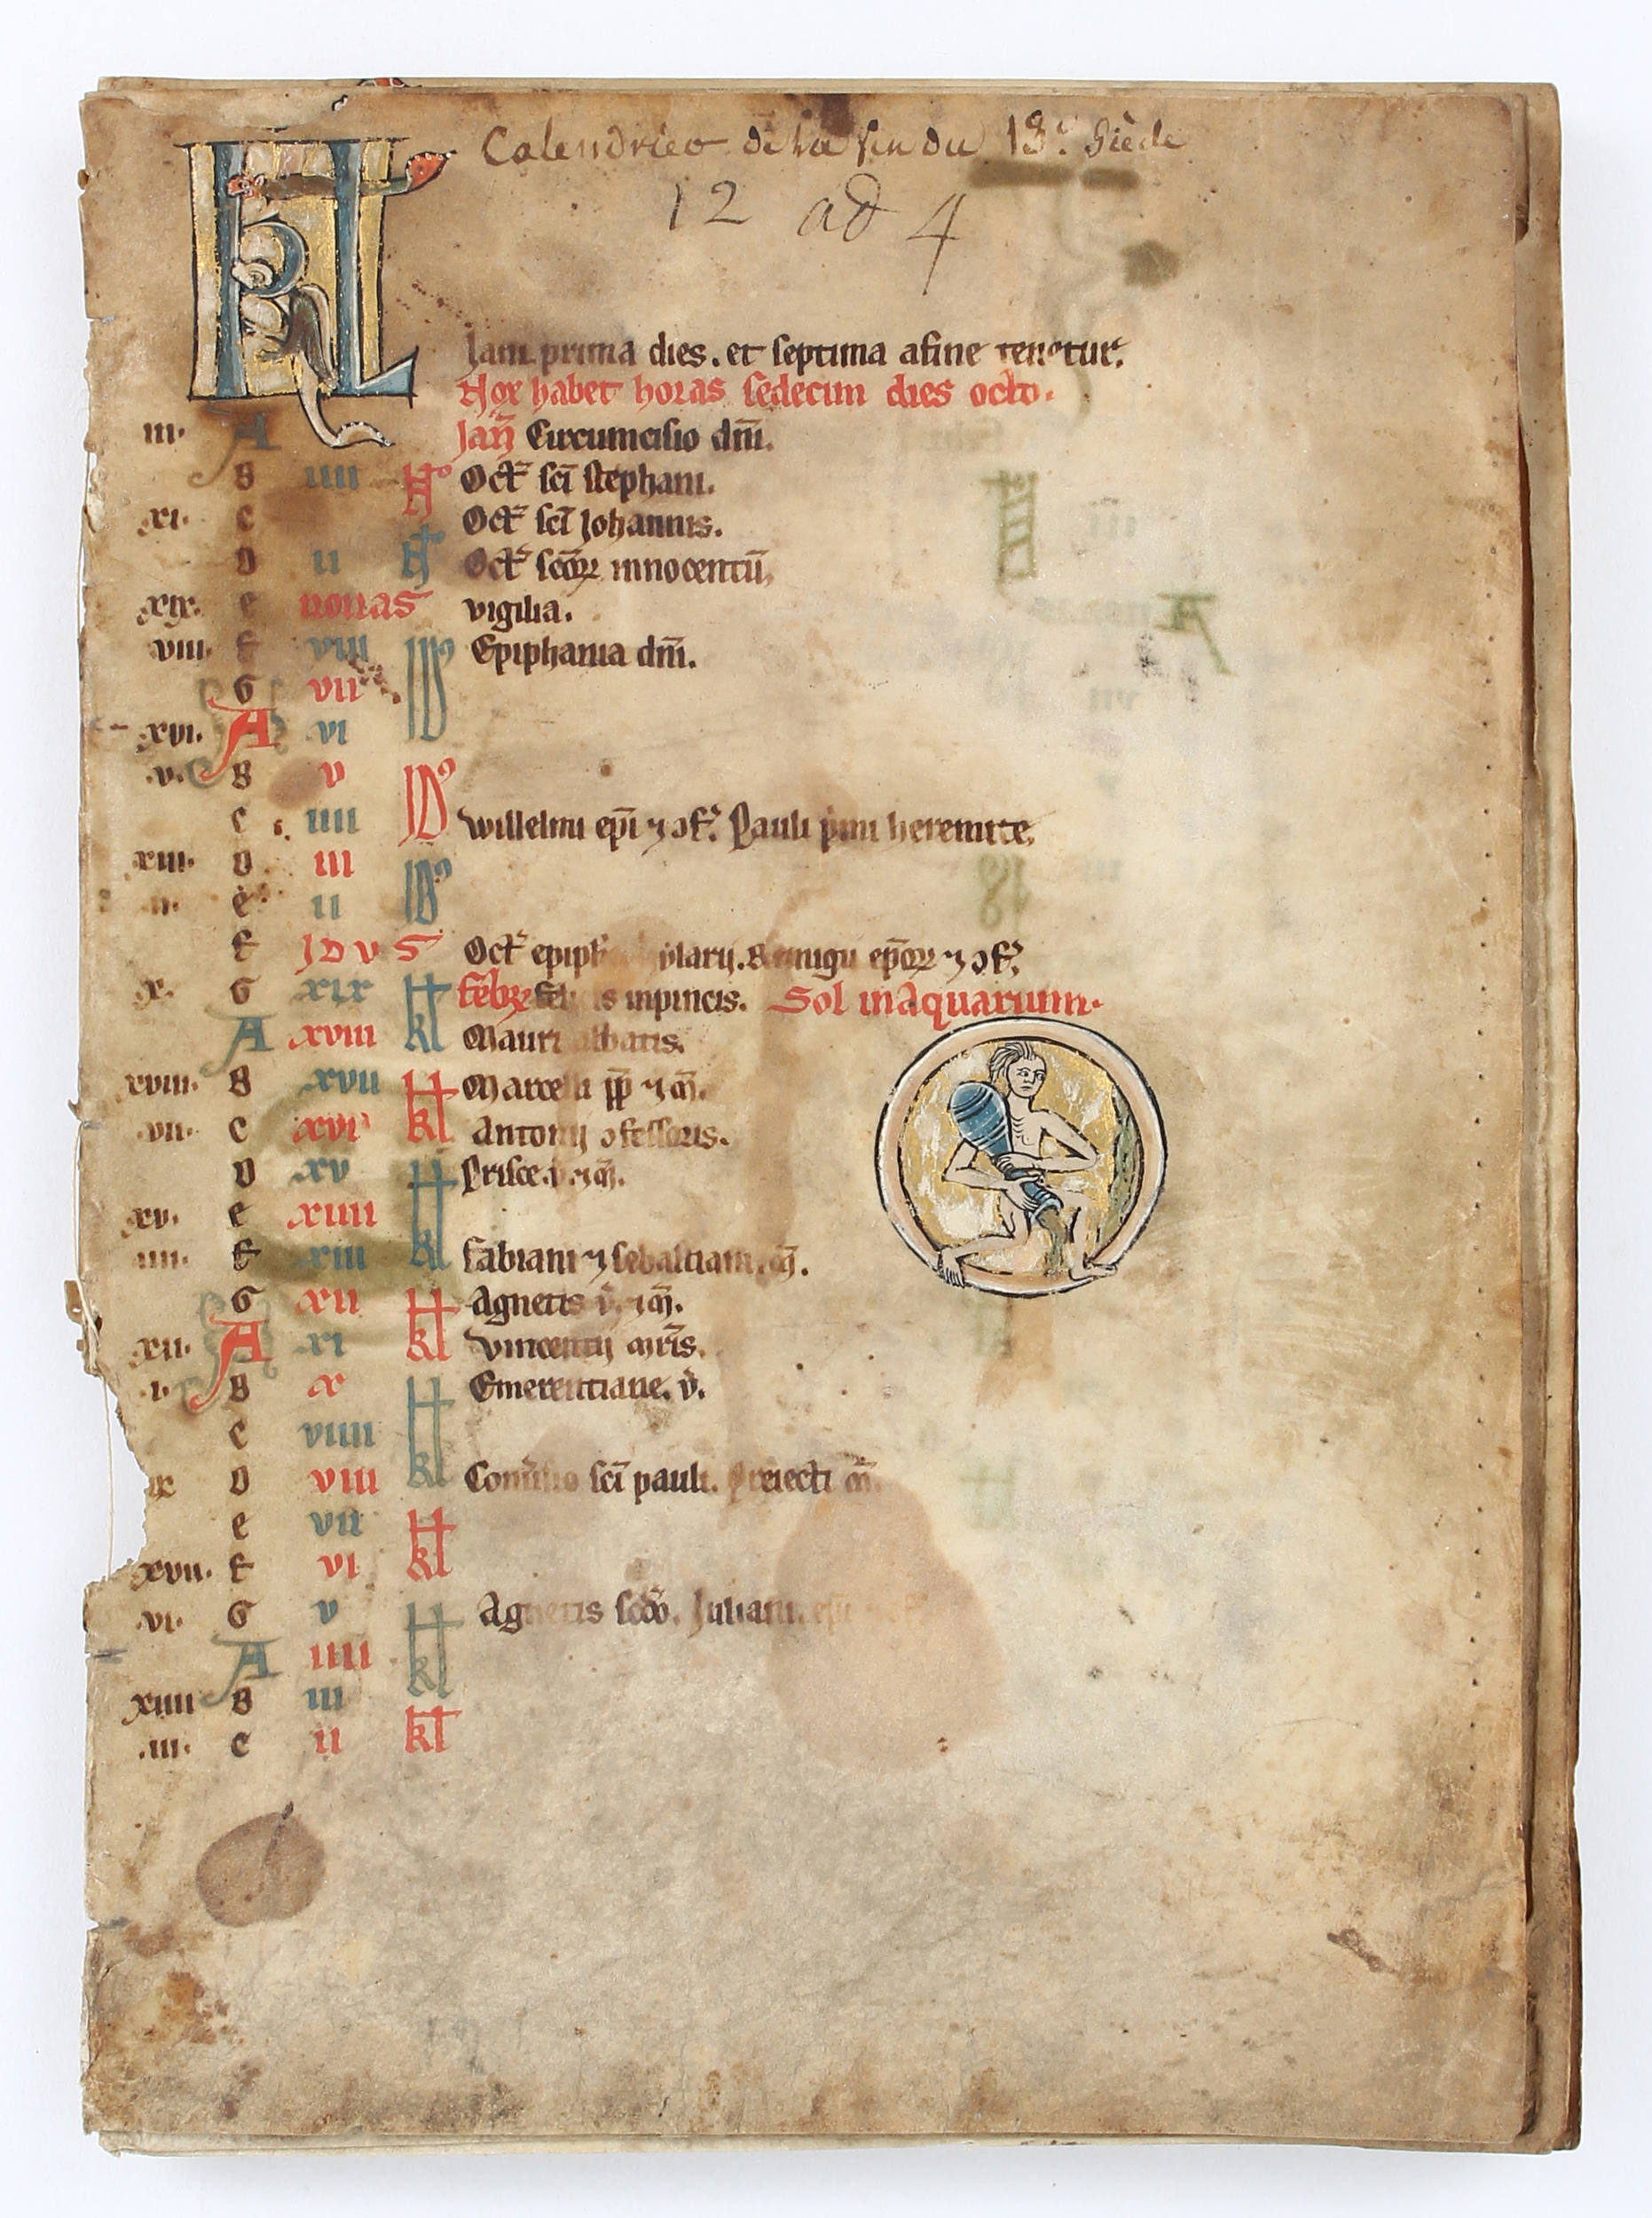 Calendrier de la fin du 13e Siècle
12 ad 4
KL
Jani prima dies. et septima afine tenetur.
Nox habet horas sedecim dies octo.
iii. A Jan̄ Circumcisio dn̄i.
B iiii No Oct̄ sc̄i stephani.
xi. c Oct̄ sc̄i Johannis.
D ii No Oct̄ sc̄oꝝ innocentū.
xix. e nonas vigilia.
viii. f viii Id9 Epiphania dn̄i.
G vii
xvi. A vi
v. B v Id9
c iiii Willelmi ep̄i ⁊ ɔf. Pauli p̄mi heremite.
xiii. D iii
ii. e ii Id9
f IDVS Oct̄ epiph ylarij. Remigii ep̄oꝝ ⁊ ɔf.
x. G xix kl febꝝ felicis inpincis. Sol in Aquarium.
A xviii Mauri abbatis.
xviii. B xvii kl Marcelli pp̄ ⁊ m̄.
vii. c xvi Antonij ɔfessoris.
D xv kl Prisce v̄. ⁊ m̄.
xv. e xiiii
iiii. f xiii Fabiani ⁊ sebastiani m̄.
G xii kl Agnetis v̄. ⁊ m̄.
xii. A xi Vincentij m̄ris.
i. B x kl Emerentiane. v̄.
c viiii
ix D viii Conūsio sc̄i pauli. Preiecti m̄.
e vii kl
xvii. f vi
vi. G v kl Agnetis sc̄do. Juliani.
A iiii
xiiii B iii
.iii. c ii kl